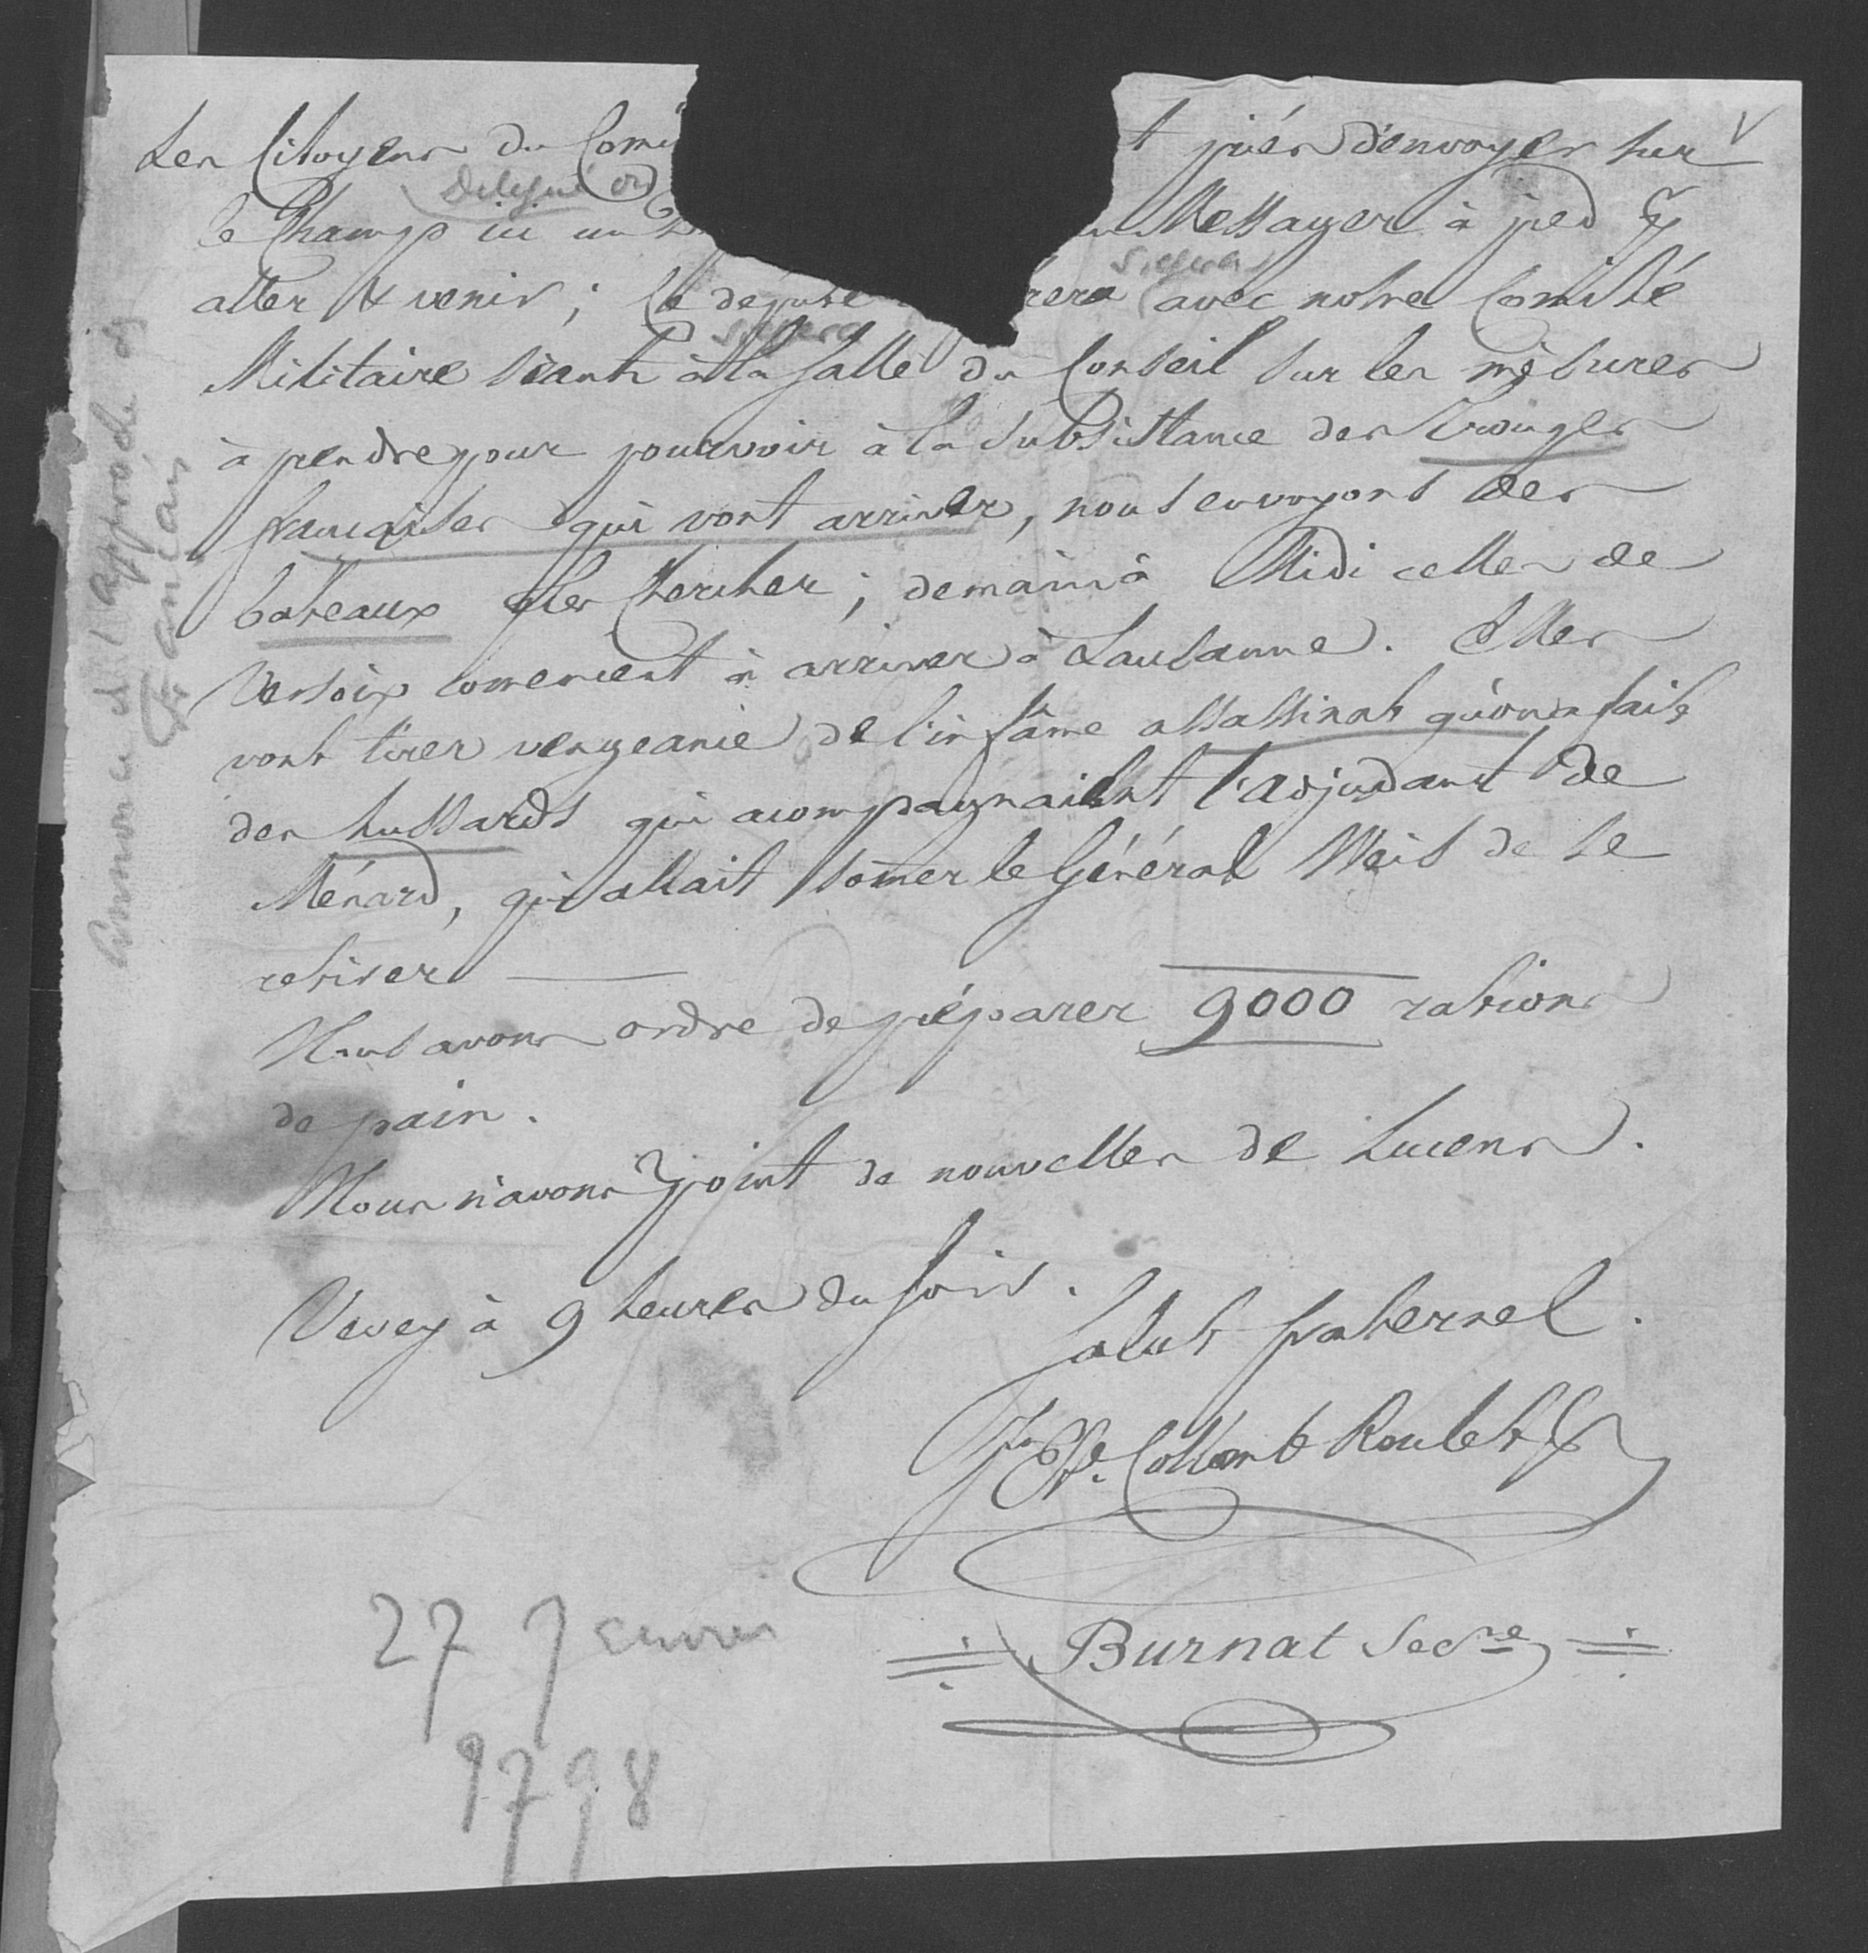 Les Citoyens du Comi t priés d'envoyer sur
Délégué ou
le Champ ici un Messager à pied &
aller & venir ; le député rera avec notre Comité
Militaire séant à la Salle du Conseil sur les mésures
à prendre pour pourvoir à la Subsistance des Trouppes
francaises qui vont arriver, nous envoyons des
bateaux les Chercher ; demain à Midi celles de
Versoix comencent à arriver à Lausanne. Elles
vont tirer vengeance de l'infâme assassinat qu'on en fait
des hussards qui acompagnaient l'adjudant de
Ménard, qui allait somer le Général Weis de se
retirer
Nous avons ordre de préparer 9000 rations
de pain.
Nous n'avons point de nouvelles de Lucens.
Vevey à 9 heures du soir.
Salut fraternel.
Collomb Roulet
Burnat Secre
27 Janvier
1798
Annonce de l'approche des
Français